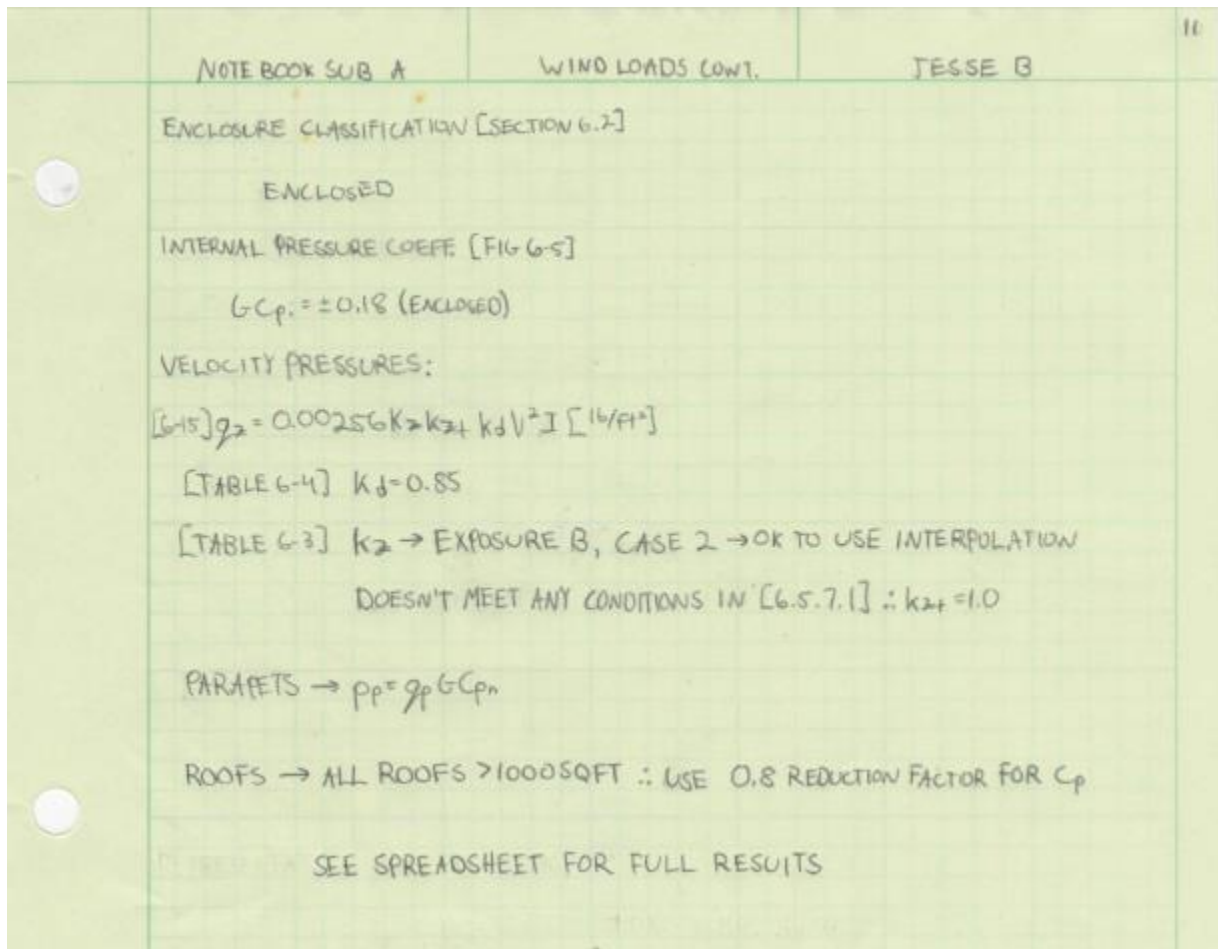 10
NOTEBOOK SUB A WIND LOADS CONT. JESSE B
ENCLOSURE CLASSIFICATION [SECTION 6.2]
ENCLOSED
INTERNAL PRESSURE COEFF. [FIG 6-5]
GCpi = ±0.18 (ENCLOSED)
VELOCITY PRESSURES:
[6-15] qz = 0.00256 Kz Kzt Kd V² I [lb/ft²]
[TABLE 6-4] Kd = 0.85
[TABLE 6-3] Kz → EXPOSURE B, CASE 2 → OK TO USE INTERPOLATION
DOESN'T MEET ANY CONDITIONS IN [6.5.7.1] ∴ Kzt = 1.0
PARAPETS → Pp = qp GCpn
ROOFS → ALL ROOFS >1000SQFT ∴ USE 0.8 REDUCTION FACTOR FOR Cp
SEE SPREADSHEET FOR FULL RESULTS